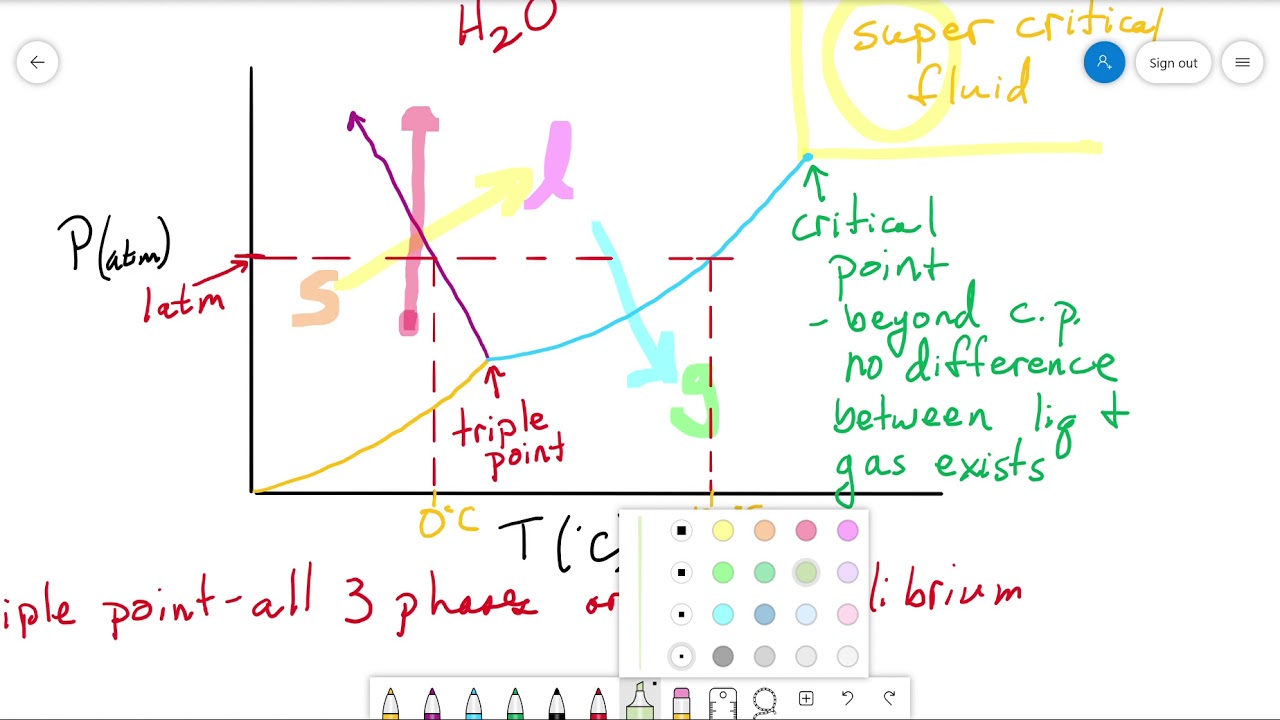 H2O
super critical
fluid
Sign out
l
P(atm)
1atm
s
critical
point
- beyond c.p.
no difference
between liq +
gas exists
g
triple
point
0°C
T(°C
iple point-all 3 phases
librium